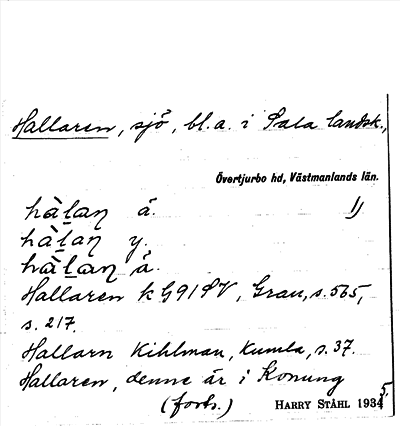 Hallaren, sjö, bl.a. i Sala landsk.,
Övertjurbo hd, Västmanlands län.
hàlaŋ å. 1)
hàlaŋ y.
hàlaŋ å.
Hallaren k G91SV, Grau, s. 565,
s. 217.
Hallarn Kihlman, Kumla, s. 37.
Hallaren, denne är i Konung
(forts.) HARRY STÅHL 1934